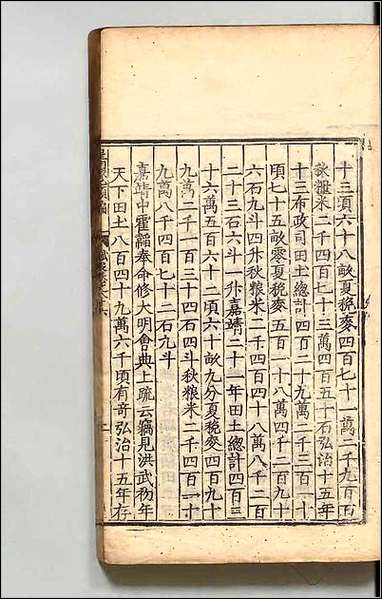 十三頃六十八畝夏稅麥四百七十一萬二千九百石
秋糧米二千四百七十三萬四百五十石弘治十五年
十三布政司田土總計四百二十九萬二千三百一十
頃七十五畝零夏稅麥五百一十八萬四千二百九十
六石九斗四升秋粮米二千四百四十八萬八千二百
二十三石六斗一升嘉靖二十一年田土總計四百三
十六萬五百六十二頃六十畝九分夏稅麥四百九十
九萬二千一百三十四石四斗秋粮米二千四百一十
九萬八千四百七十二石九斗
嘉靖中霍韜奉命修大明會典上疏云竊見洪武初年
天下田土八百四十九萬六千頃有奇弘治十五年存